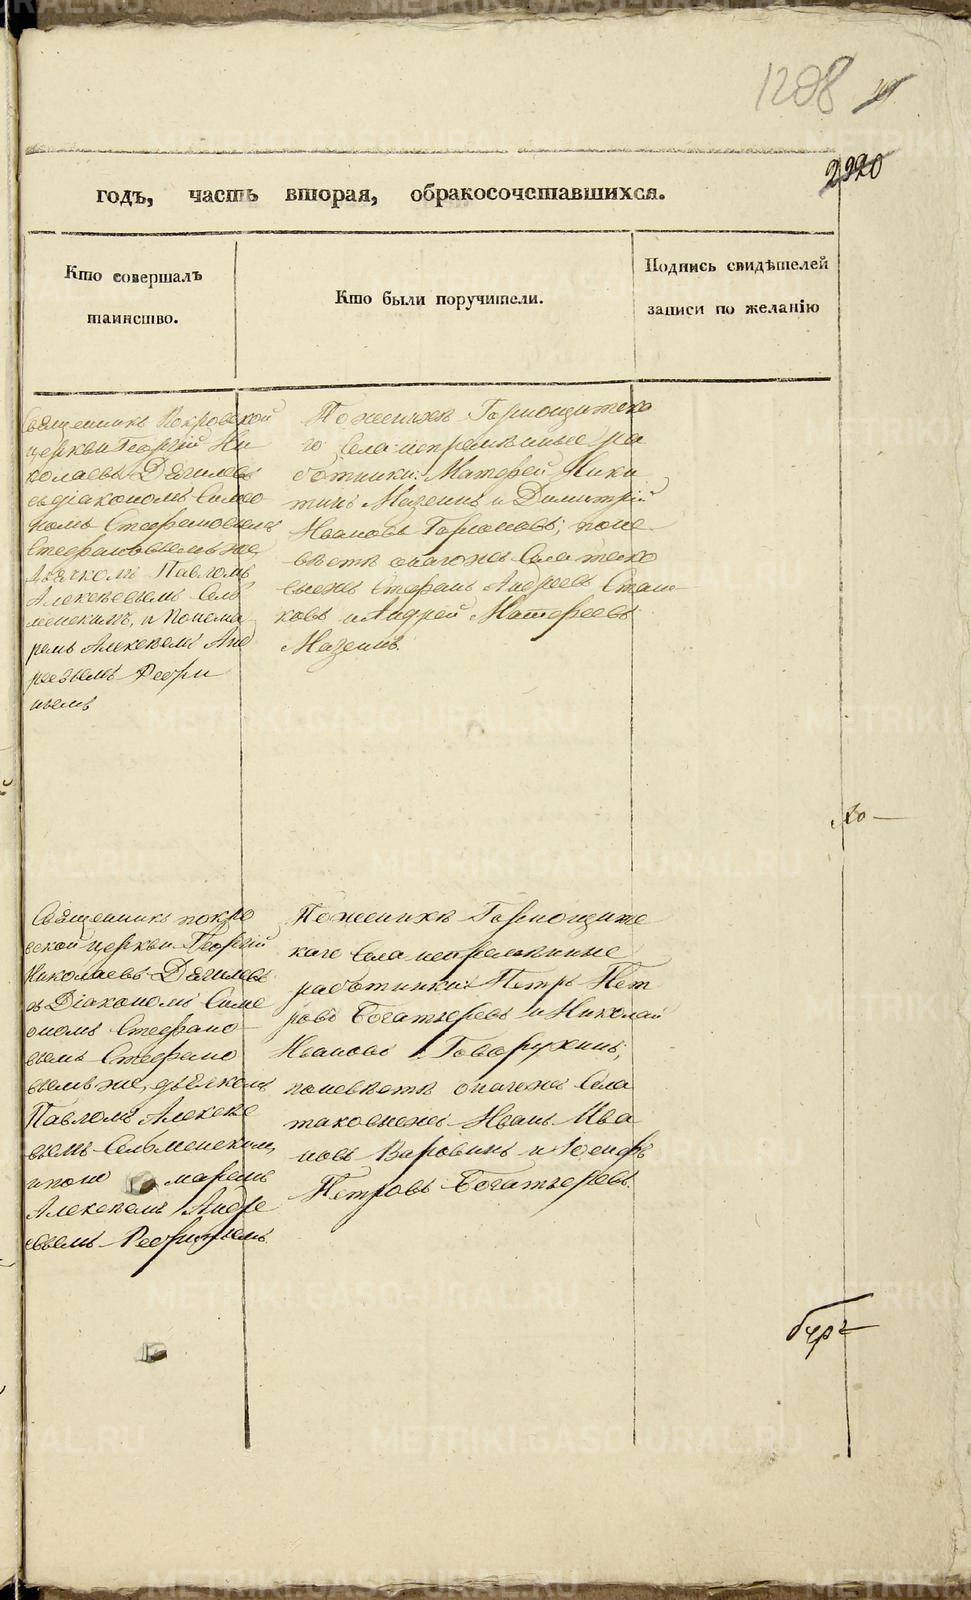 1208
2920
годъ, часть вторая, обракосочетавшихся.
Кто совершалъ
таинство.
Кто были поручители.
Подпись свидѣтелей
записи по желанію
Священникъ Покровской
церкви Георгій Ни
колаевъ Дягилевъ
съ діакономъ Симео
номъ Стефановымъ
Стефановымъ же,
дьячкомъ Павломъ
Алексѣевымъ Сель
менскимъ, и Понома
ремъ Алексѣемъ Анд
реевымъ Рефти
нымъ
По женихѣ Горнощитска
го Села непремѣнные ра
ботники: Матфей Ники
тинъ Мазеинъ и Димитрій
Ивановъ; поне
вѣстѣ онагожъ Села тако
выежъ Стефанъ Андреевъ
ковъ и Андрей Матфеевъ
Мазеинъ.
Священникъ покро
вской церкви Георгій
Николаевъ Дягилевъ
съ Діакономъ Симе
ономъ Стефано
вымъ Стефано
вымъ же, дьячкомъ
Павломъ Алексѣе
вымъ Сельменскимъ,
ипоно маремъ
Алексѣемъ Андре
евымъ
По женихѣ Горнощитс
каго Села непремѣнные
работники: Петръ Пет
ровъ Богатыревъ и Николай
Ивановъ Говорухинъ;
поневѣстѣ онагожъ Села
таковыежъ Иванъ Ива
новъ и Іосифъ
Петровъ Богатыревъ.
METRIKI.GASO-URAL.RU